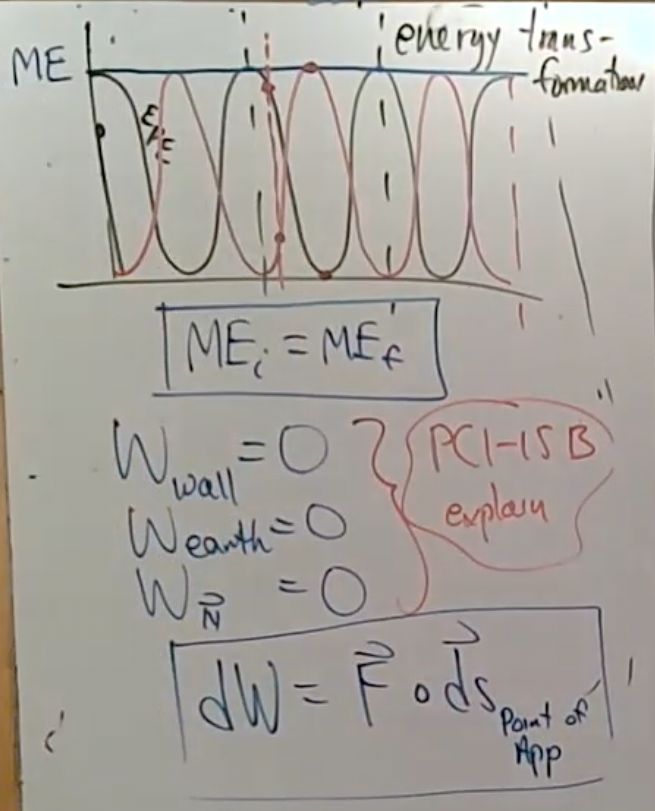 energy trans-
ME
formation
MEᵢ = ME_f
W_wall = 0
W_earth = 0
W_N⃗ = 0
PC1-15B
explain
dW = F⃗ ∘ d⃗s Point of
App